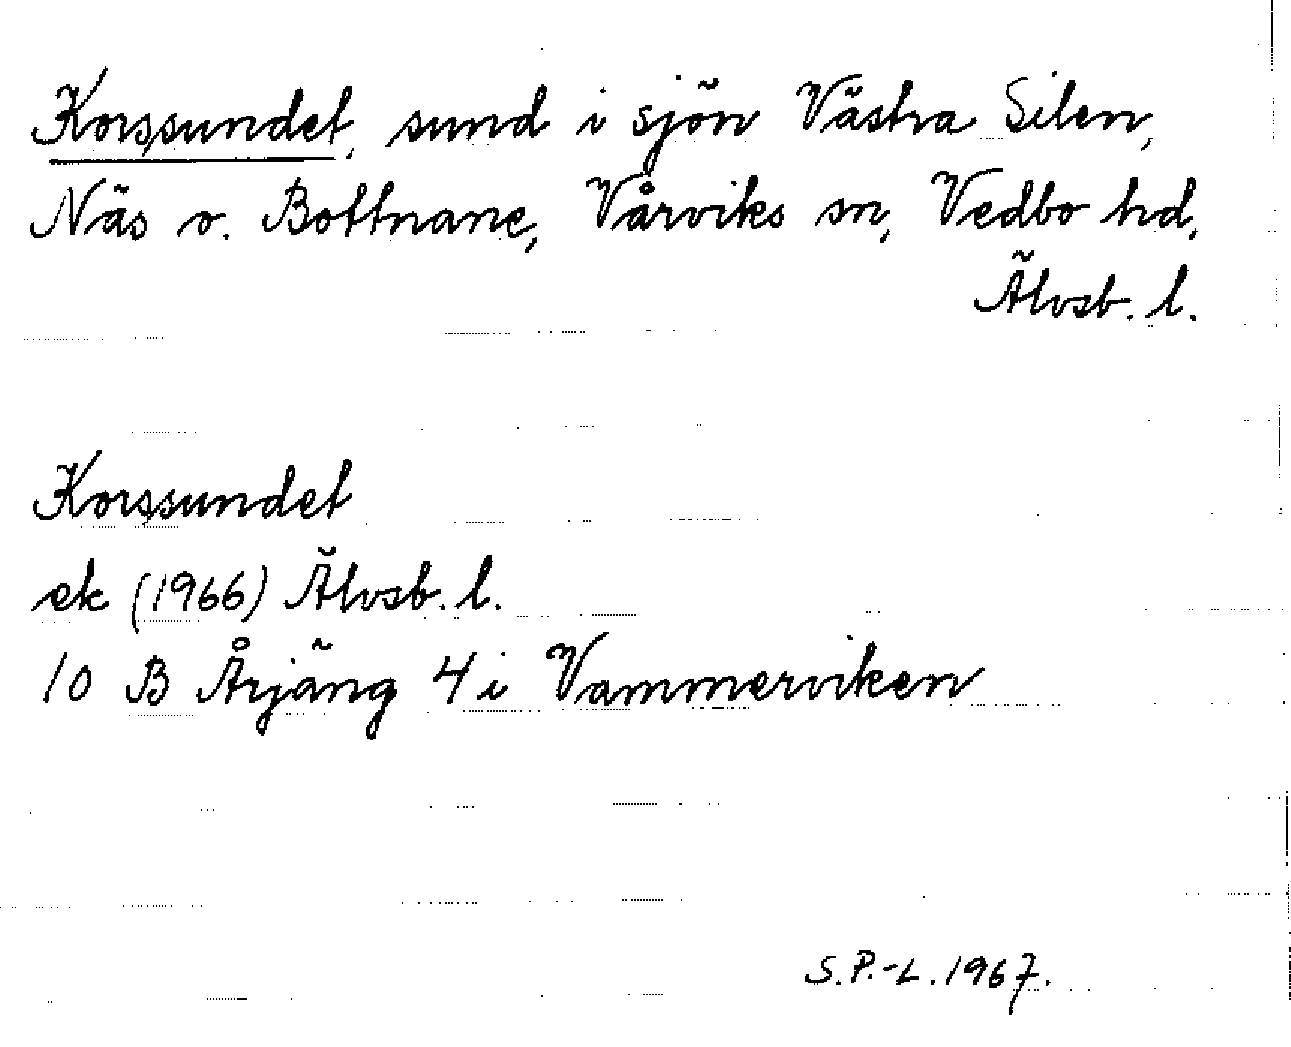 Korssundet, sund i sjön Västra Silen,
Näs o. Bottnane, Vårviks sn, Vedbo hd,
Älvsb. l.
Korssundet
ek (1966) Älvsb. l.
10 B Årjäng 4 i Vammerviken
S.P.-L. 1967.